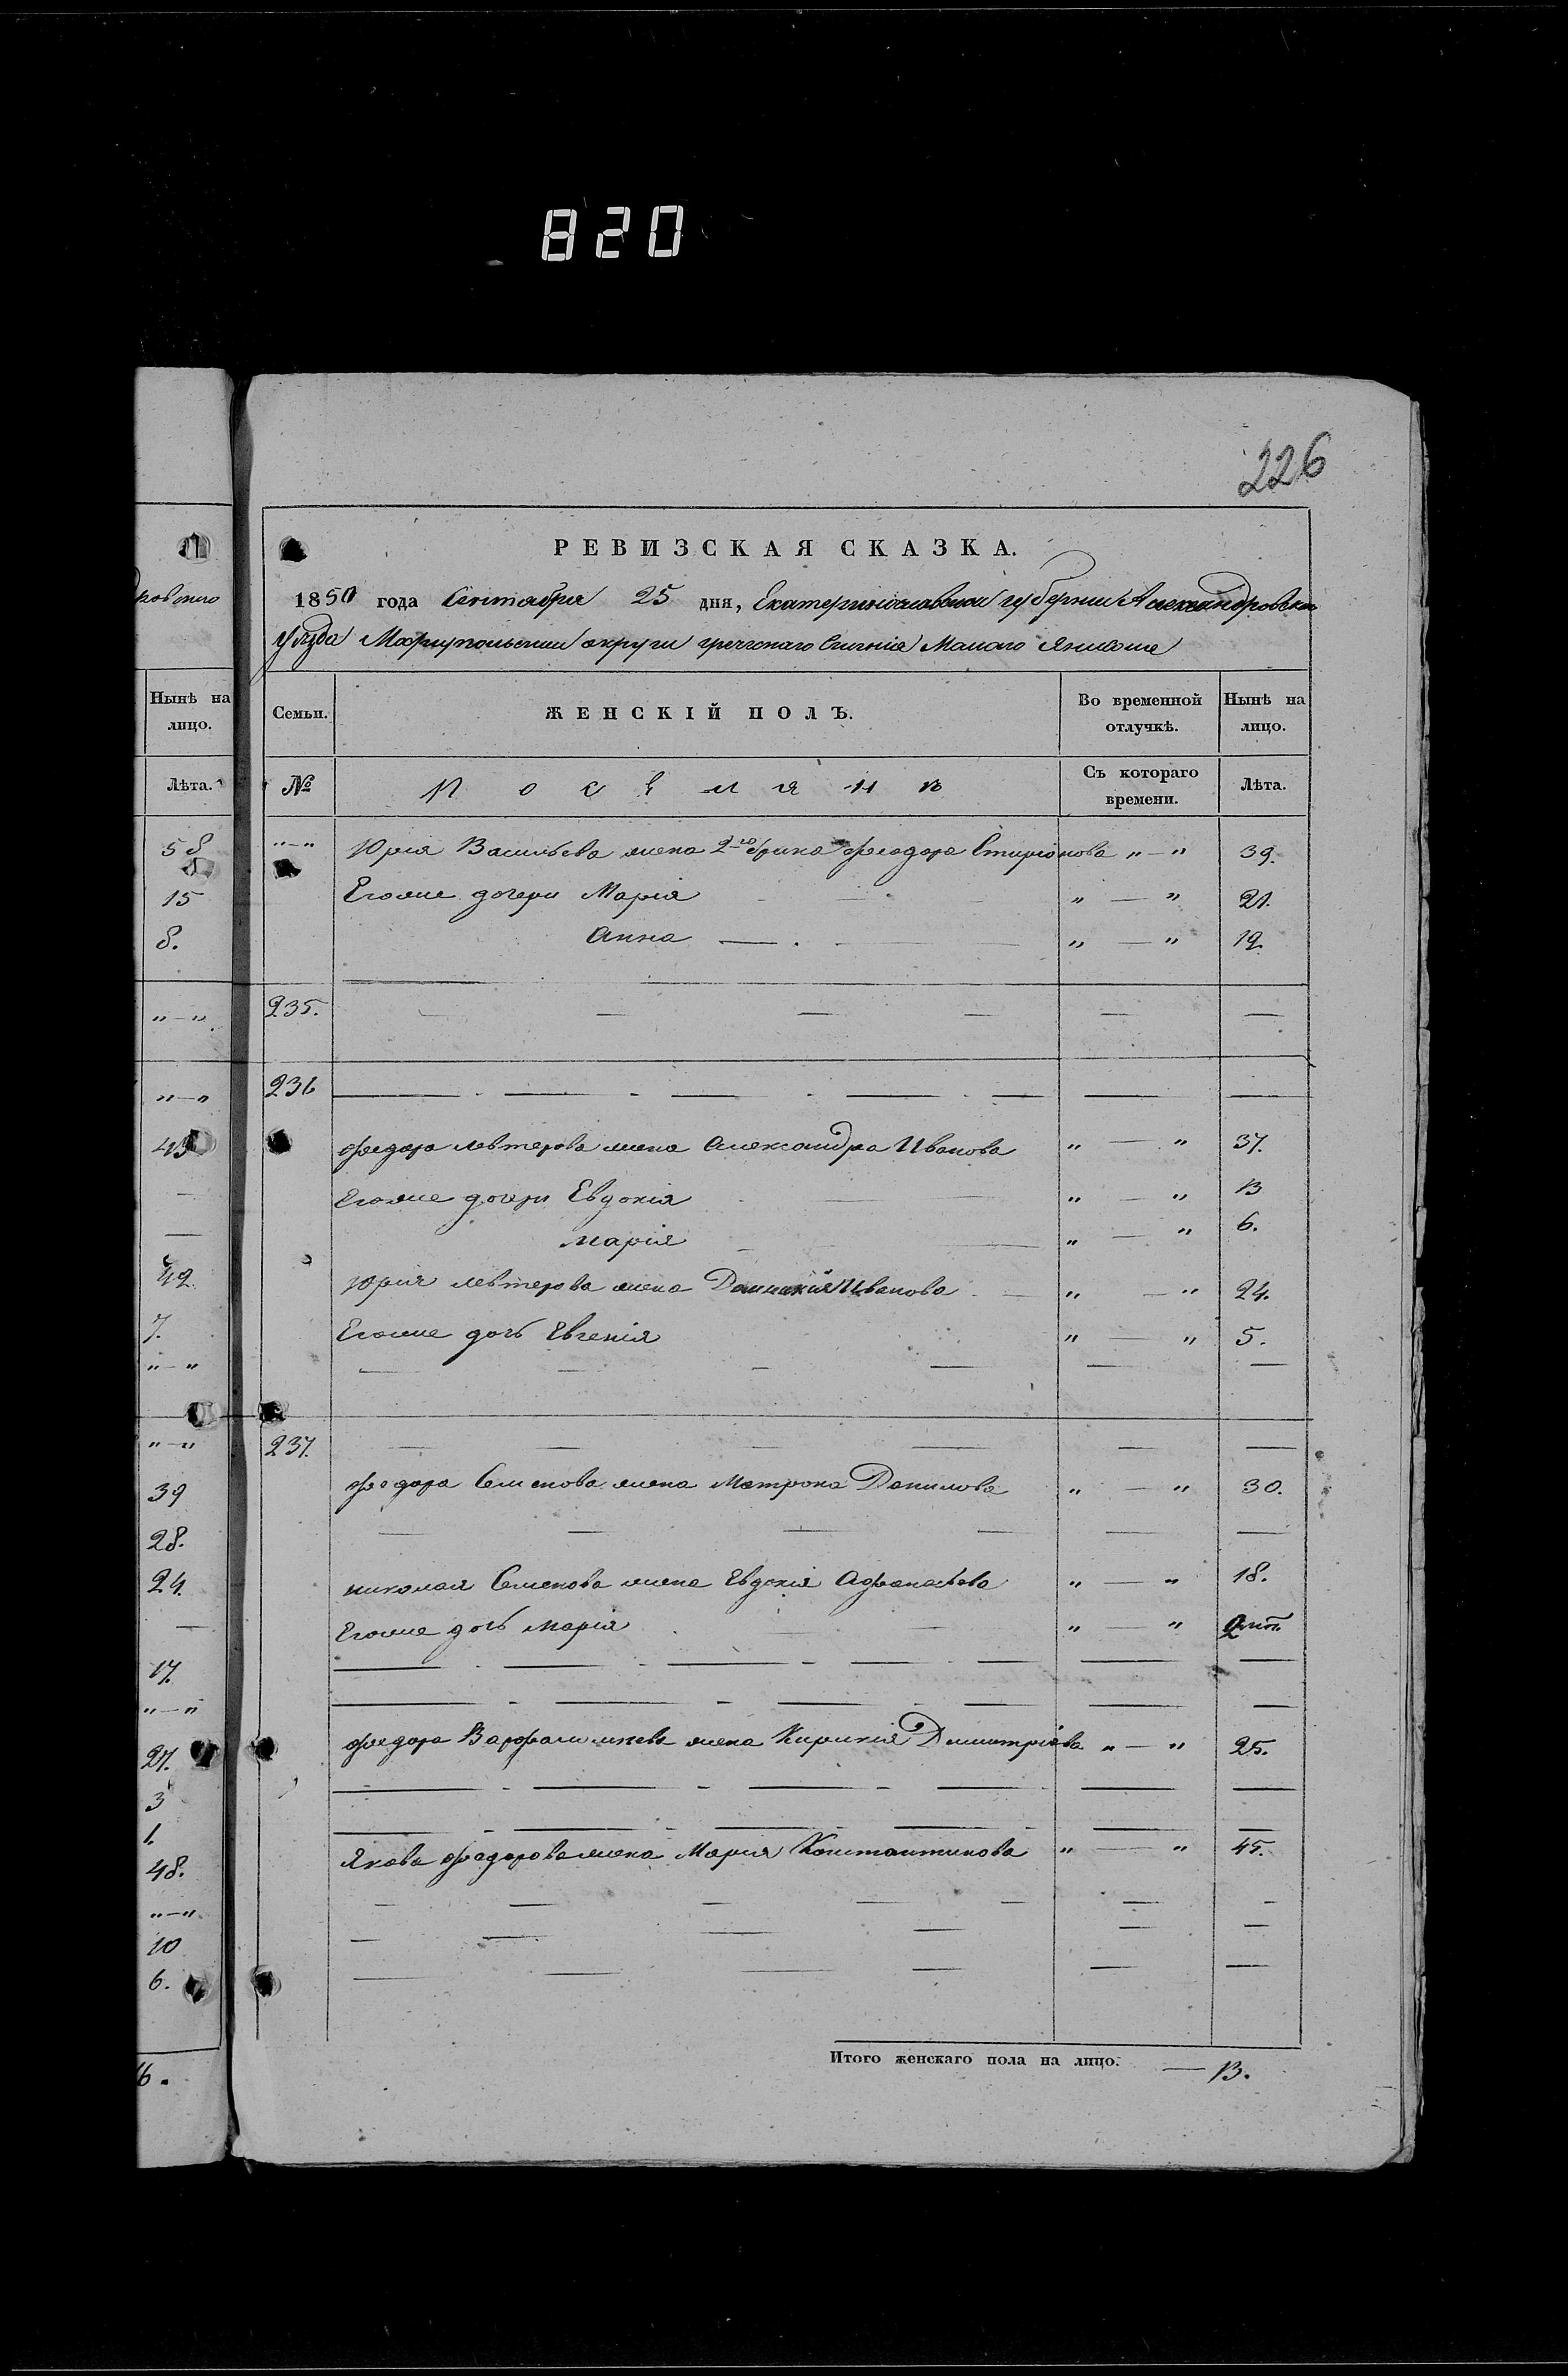 820
226
РЕВИЗСКАЯ СКАЗКА.
1850 года Сентября 25 дня, Екатеринославской губернии Александровска
уѣзда Мариупольскии округи греческаго Селенія Малаго Янисоля
Нынѣ на лицо.
Лѣта.
58
15
8.
"—"
"—"
49
7.
"—"
"—"
39
28.
24.
17.
"—"
27.
3
1.
48.
"—"
10
6.
6.
Семьи. ЖЕНСКІЙ ПОЛЪ. Во временной отлучкѣ. Нынѣ на лицо.
№ Поселянъ Съ котораго времени. Лѣта.
"—" Юрія Васильева жена 2го брака Феодора Спиріонова "—" 39.
Егоже дочери Марія "—" 21.
Анна "—" 12.
235.
236
Федора Левтерова жена Александра Иванова "—" 37.
Егоже дочери Евдокія "—" 13
Марія "—" 6.
Юрія Левтерова жена Иванова "—" 24.
Егоже дочь Евгенія "—" 5.
237.
Федора Семенова жена Матрона Данилова "—" 30.
Николая Семенова жена Евдокія Афанасьева "—" 18.
Егоже дочь Марія "—" 2
Федора жена Кирикія Димитріева "—" 25.
Якова Федорова жена Марія Константинова "—" 45.
Итого женскаго пола на лицо. — 13.